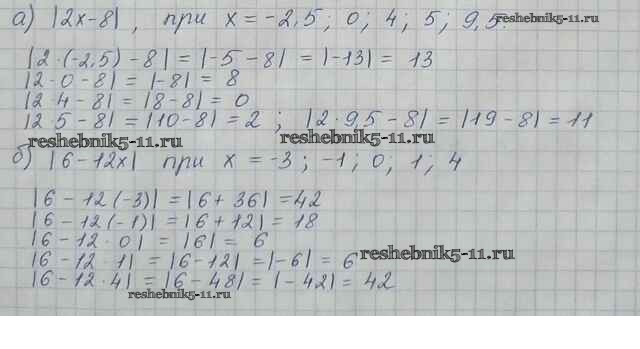 а) |2x-8|, при x = -2,5; 0; 4; 5; 9,5.
reshebnik5-11.ru
|2·(-2,5) - 8| = |-5 - 8| = |-13| = 13
|2·0 - 8| = |-8| = 8
|2·4 - 8| = |8-8| = 0
|2·5 - 8| = |10-8| = 2; |2·9,5 - 8| = |19-8| = 11
reshebnik5-11.ru reshebnik5-11.ru
б) |6-12x| при x = -3; -1; 0; 1; 4
|6 - 12(-3)| = |6 + 36| = 42
|6 - 12(-1)| = |6 + 12| = 18
|6 - 12·0| = |6| = 6
|6 - 12·1| = |6-12| = |-6| = 6
reshebnik5-11.ru
|6 - 12·4| = |6 - 48| = |-42| = 42
reshebnik5-11.ru